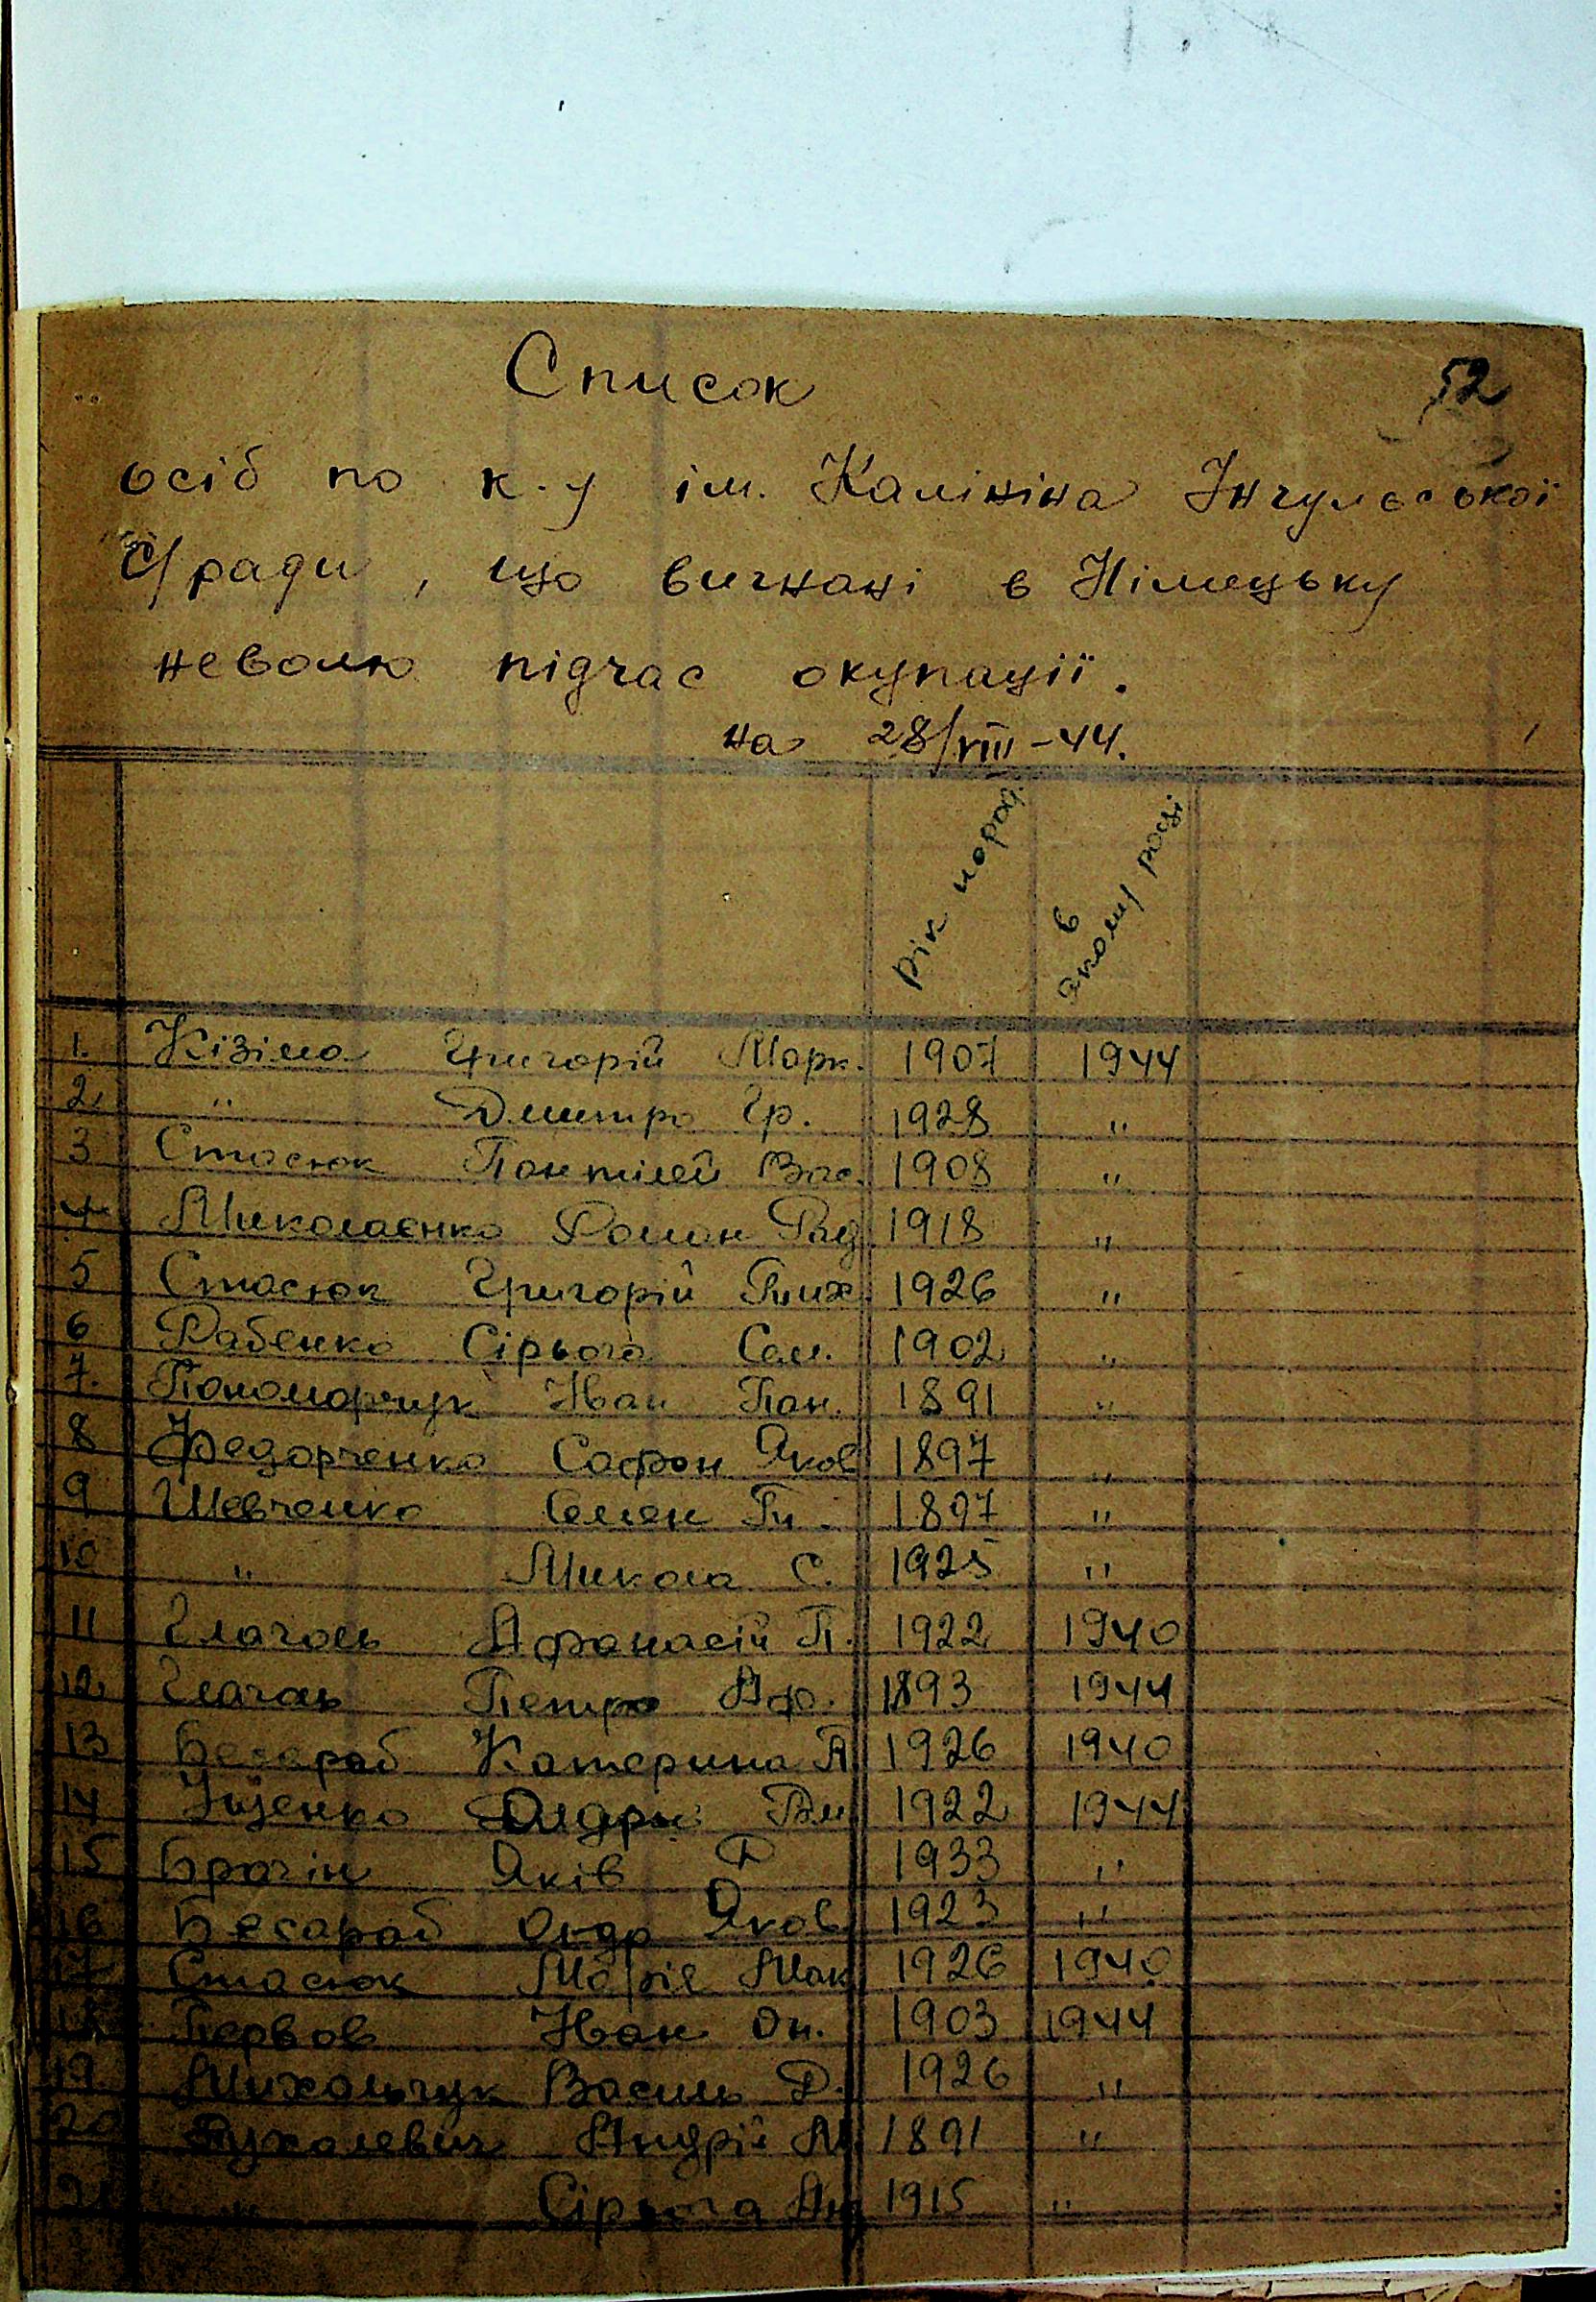 Список
52
осіб по к.у ім. Калініна Інгулєської
С/ради, що вигнані в Німецьку
неволю підчас окупації.
на 28/VIII-44.
рік нород. в якому році
1. Кізіма Григорій Марк. 1907 1944
2. " Дмитро Гр. 1928 "
3 Стасюк Пантілей Вас. 1908 "
4 Миколаєнко Роман Рад 1918 "
5 Стасюк Григорій Тих 1926 "
6 Рабенко Сірьога Сам. 1902 "
7. Пономарчук Іван Пан. 1891 "
8 Федорченко Софрон Яков 1897 "
9 Шевченко Семен Ти. 1897 "
10 " Микола С. 1925 "
11 Глаголь Афанасій П. 1922 1940
12 Глаголь Петро Аф. 1893 1944
13 Бесараб Катерина П. 1926 1940
14 Іщенко 1922 1944
15 Брагін Яків Д 1933 "
16 Бесараб Яков 1923 "
17 Стасюк Марія Мак 1926 1940
18 Первов Іван Он. 1903 1944
19. Михальчук Василь Д. 1926 "
20 Андрій М. 1891 "
21 " Сірьога Ан 1915 "